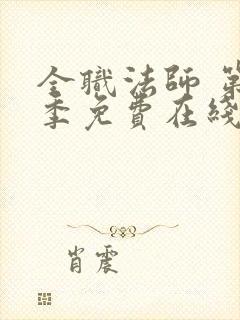 全職法師 第
季免費在綫
肖震